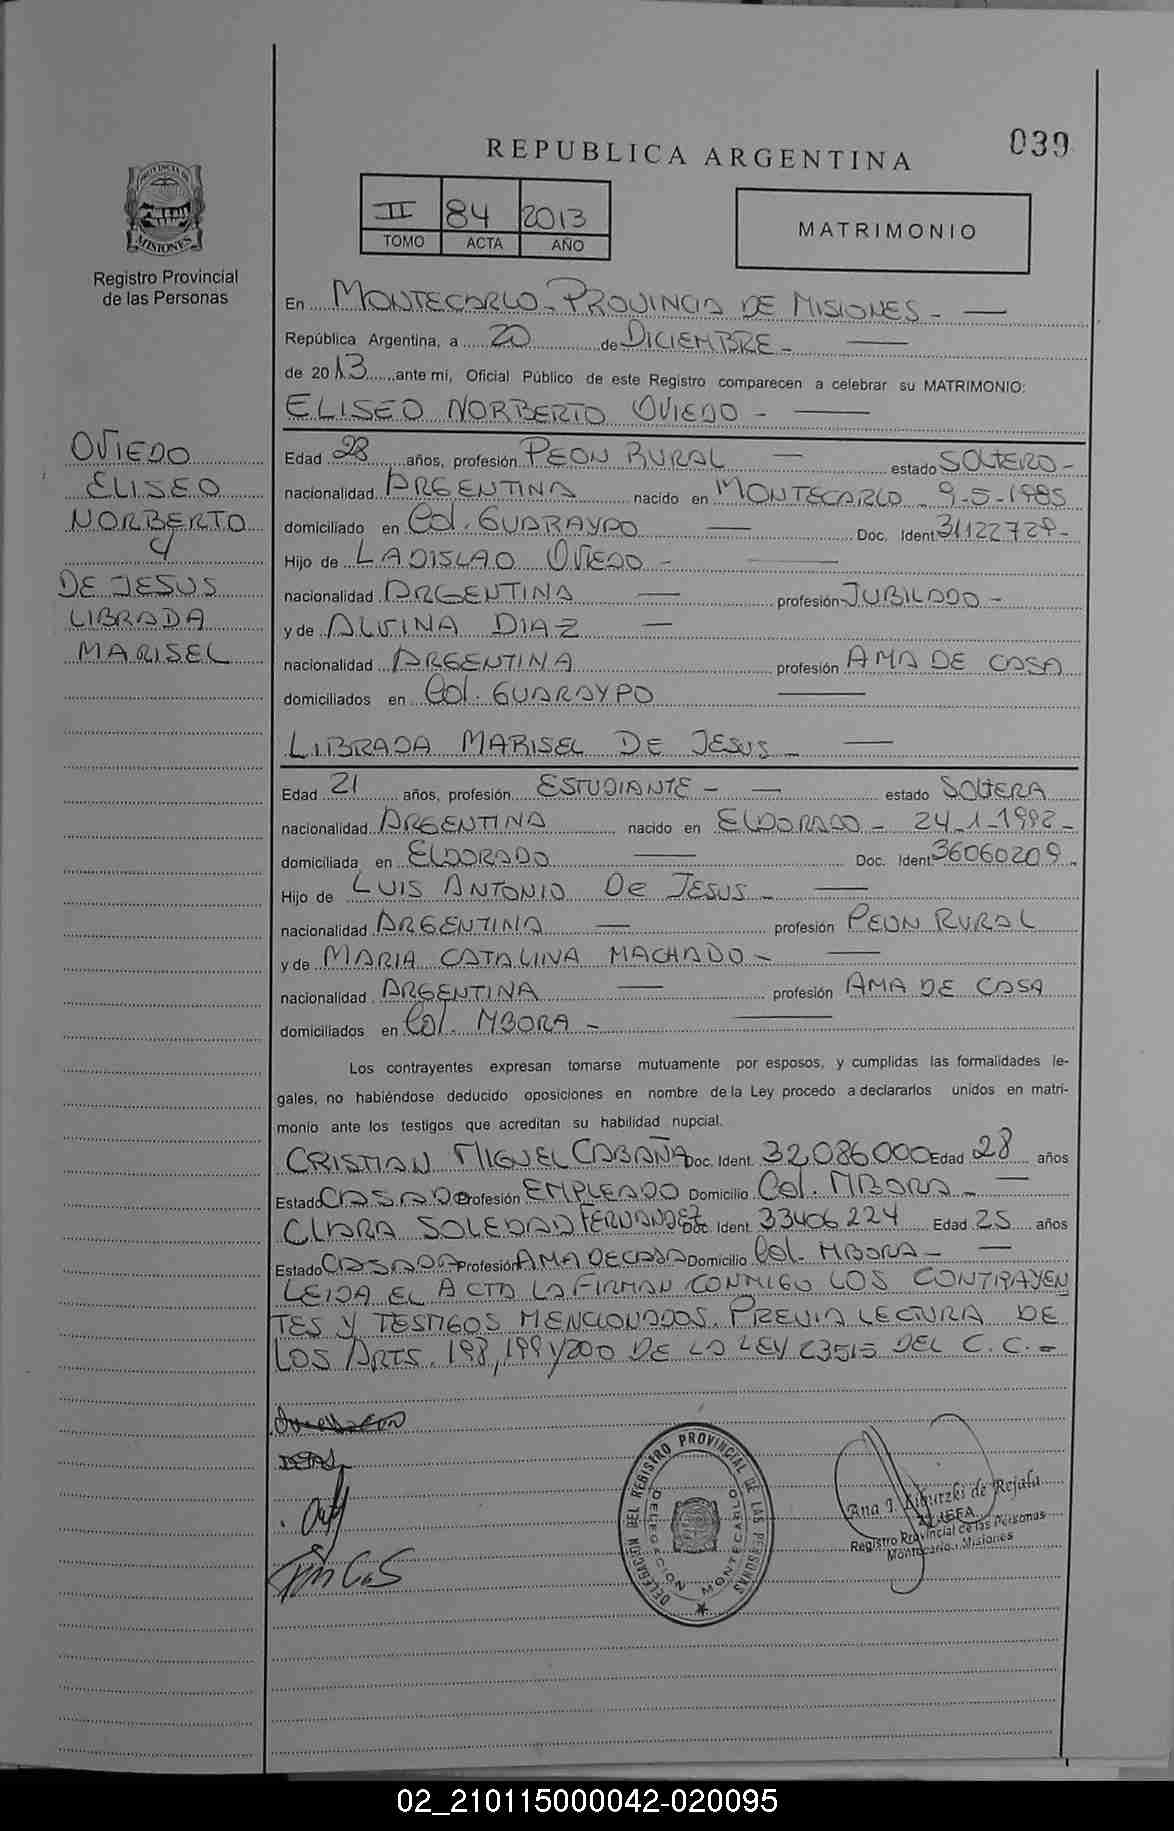 039
REPUBLICA ARGENTINA
PROVINCIA DE
MISIONES
Registro Provincial
de las Personas
II 84 2013
TOMO ACTA AÑO
MATRIMONIO
En MONTECARLO - PROVINCIA DE MISIONES -
República Argentina, a 20 de DICIEMBRE -
de 2013 ante mí, Oficial Público de este Registro comparecen a celebrar su MATRIMONIO:
ELISEO NORBERTO OVIEDO -
OVIEDO
ELISEO
NORBERTO
y
DE JESUS
LIBRADA
MARISEL
Edad 28 años, profesión PEON RURAL estado SOLTERO -
nacionalidad ARGENTINA nacido en MONTECARLO - 9-5-1985
domiciliado en Col. GUARAYPO Doc. Ident. 31122729 -
Hijo de LADISLAO OVIEDO -
nacionalidad ARGENTINA profesión JUBILADO -
y de ALVINA DIAZ
nacionalidad ARGENTINA profesión AMA DE CASA
domiciliados en Col. GUARAYPO
LIBRADA MARISEL DE JESUS -
Edad 21 años, profesión ESTUDIANTE - estado SOLTERA
nacionalidad ARGENTINA nacido en ELDORADO - 24-1-1992 -
domiciliada en ELDORADO Doc. Ident. 36060209 -
Hijo de LUIS ANTONIO DE JESUS -
nacionalidad ARGENTINA profesión PEON RURAL
y de MARIA CATALINA MACHADO -
nacionalidad ARGENTINA profesión AMA DE CASA
domiciliados en Col. MBORA -
Los contrayentes expresan tomarse mutuamente por esposos, y cumplidas las formalidades le-
gales, no habiéndose deducido oposiciones en nombre de la Ley procedo a declararlos unidos en matri-
monio ante los testigos que acreditan su habilidad nupcial.
CRISTIAN MIGUEL CABAÑA Doc. Ident. 32.086.000 Edad 28 años
Estado CASADO Profesión EMPLEADO Domicilio Col. MBORA -
CLARA SOLEDAD FERNANDEZ Doc. Ident. 33406224 Edad 25 años
Estado CASADA Profesión AMA DE CASA Domicilio Col. MBORA -
LEIDA EL ACTA LA FIRMAN CONMIGO LOS CONTRAYEN
TES Y TESTIGOS MENCIONADOS. PREVIA LECTURA DE
LOS ARTS. 198, 199 y 200 DE LA LEY 23515 DEL C. C. -
DELEGACION DEL REGISTRO PROVINCIAL DE LAS PERSONAS
DELEGACION MONTECARLO
Ana I. de Rejala
JEFA
Registro Provincial de las Personas
Montecarlo - Misiones
02_210115000042-020095